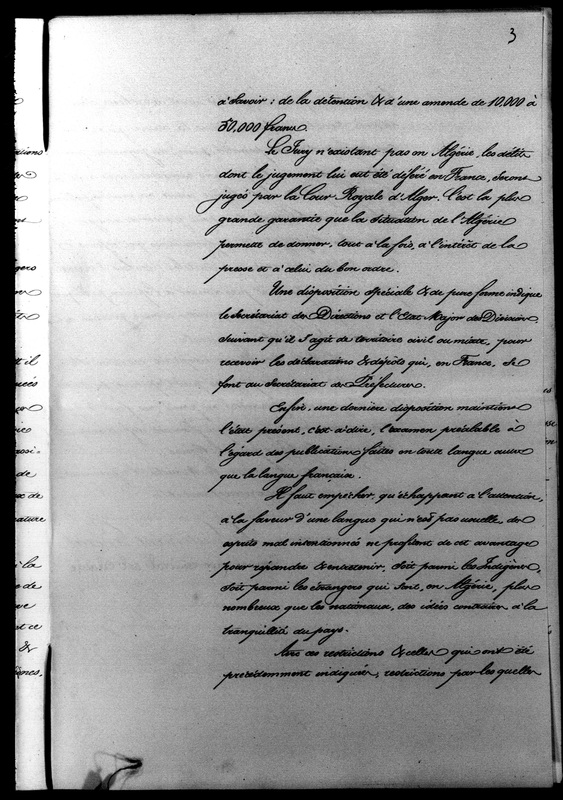 3
à Savoir : de la détention & d'une amende de 10,000 à
50,000 francs.
Le Jury n'existant pas en Algérie, les délits
dont le jugement lui eut été déféré en France, seront
jugés par la Cour Royale d'Alger. C'est la plus
grande garantie que la situation de l'Algérie
permette de donner, tout à la fois, à l'intérêt de la
presse et à celui du bon ordre.
Une disposition spéciale & de pure forme indique
le Secrétariat des Directions et l'Etat Major des Divisions
suivant qu'il s'agit de territoire civil ou mixte, pour
recevoir les déclarations & dépôts qui, en France, se
font au Secrétariat des Préfectures.
Enfin, une dernière disposition maintient
l'état présent, c'est à dire, l'examen préalable à
l'égard des publications faites en toute langue autre
que la langue française.
Il faut empêcher, qu'échappant à l'attention,
à la faveur d'une langue qui n'est pas usuelle, des
esprits mal intentionnés ne profitent de cet avantage
pour répandre & entretenir, soit parmi les Indigènes,
soit parmi les étrangers qui sont, en Algérie, plus
nombreux que les nationaux, des idées contraires à la
tranquillité du pays.
Avec ces restrictions & celles qui ont été
précédemment indiquées, restrictions par les quelles